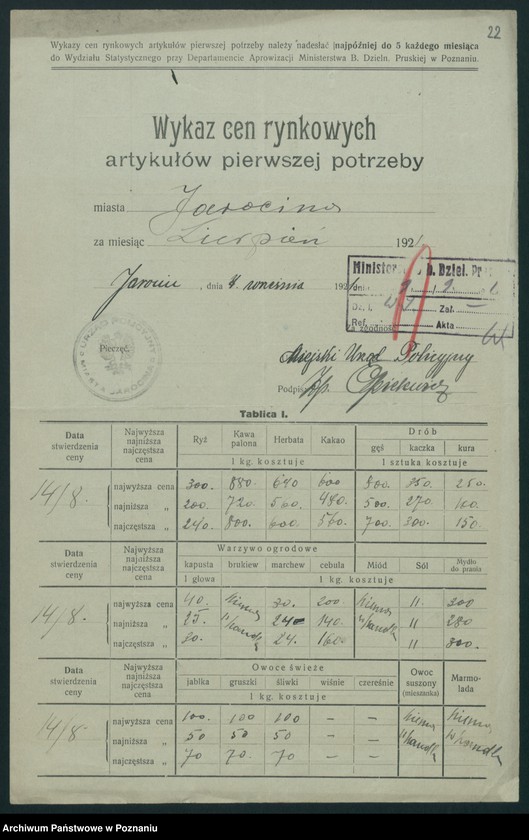 22
Wykazy cen rynkowych artykułów pierwszej potrzeby należy nadesłać najpóźniej do 5 każdego miesiąca
do Wydziału Statystycznego przy Departamencie Aprowizacji Ministerstwa B. Dzieln. Pruskiej w Poznaniu.
Wykaz cen rynkowych
artykułów pierwszej potrzeby
miasta Jarocina
za miesiąc Sierpień 1921
Jarocin, dnia 4 września 1921
Minister b. Dziel. Pr
dn.
Zał.
Ref. Akta
Za zgodność
URZĄD POLICYJNY
MIASTA JAROCINA
Pieczęć.
Miejski Urząd Policyjny
Podpis
Tablica I.
Data stwierdzenia ceny | Najwyższa najniższa najczęstsza cena | Ryż | Kawa palona | Herbata | Kakao | Drób
gęś | kaczka | kura
1 kg. kosztuje | 1 sztuka kosztuje
14/8. | najwyższa cena | 300. | 880. | 640 | 600 | 800. | 350. | 250.
najniższa „ | 200. | 720. | 560. | 480. | 500. | 270. | 100.
najczęstsza „ | 240. | 800. | 600. | 560. | 700. | 300. | 150.
Data stwierdzenia ceny | Najwyższa najniższa najczęstsza cena | Warzywo ogrodowe
kapusta | brukiew | marchew | cebula | Miód | Sól | Mydło do prania
1 głowa | 1 kg. kosztuje
14/8. | najwyższa cena | 40. | niema w handlu | 30. | 200. | niema w handlu | 11. | 300
najniższa „ | 25. | 24 | 140. | 11 | 280
najczęstsza „ | 30. | 24. | 160 | 11 | 300.
Data stwierdzenia ceny | Najwyższa najniższa najczęstsza cena | Owoce świeże | Owoc suszony (mieszanka) | Marmolada
jabłka | gruszki | śliwki | wiśnie | czereśnie
1 kg. kosztuje
14/8. | najwyższa cena | 100. | 100 | 100 | – | – | niema w handlu | niema w handlu
najniższa „ | 50 | 50 | 50 | – | –
najczęstsza „ | 70 | 70. | 70 | – | –
Archiwum Państwowe w Poznaniu